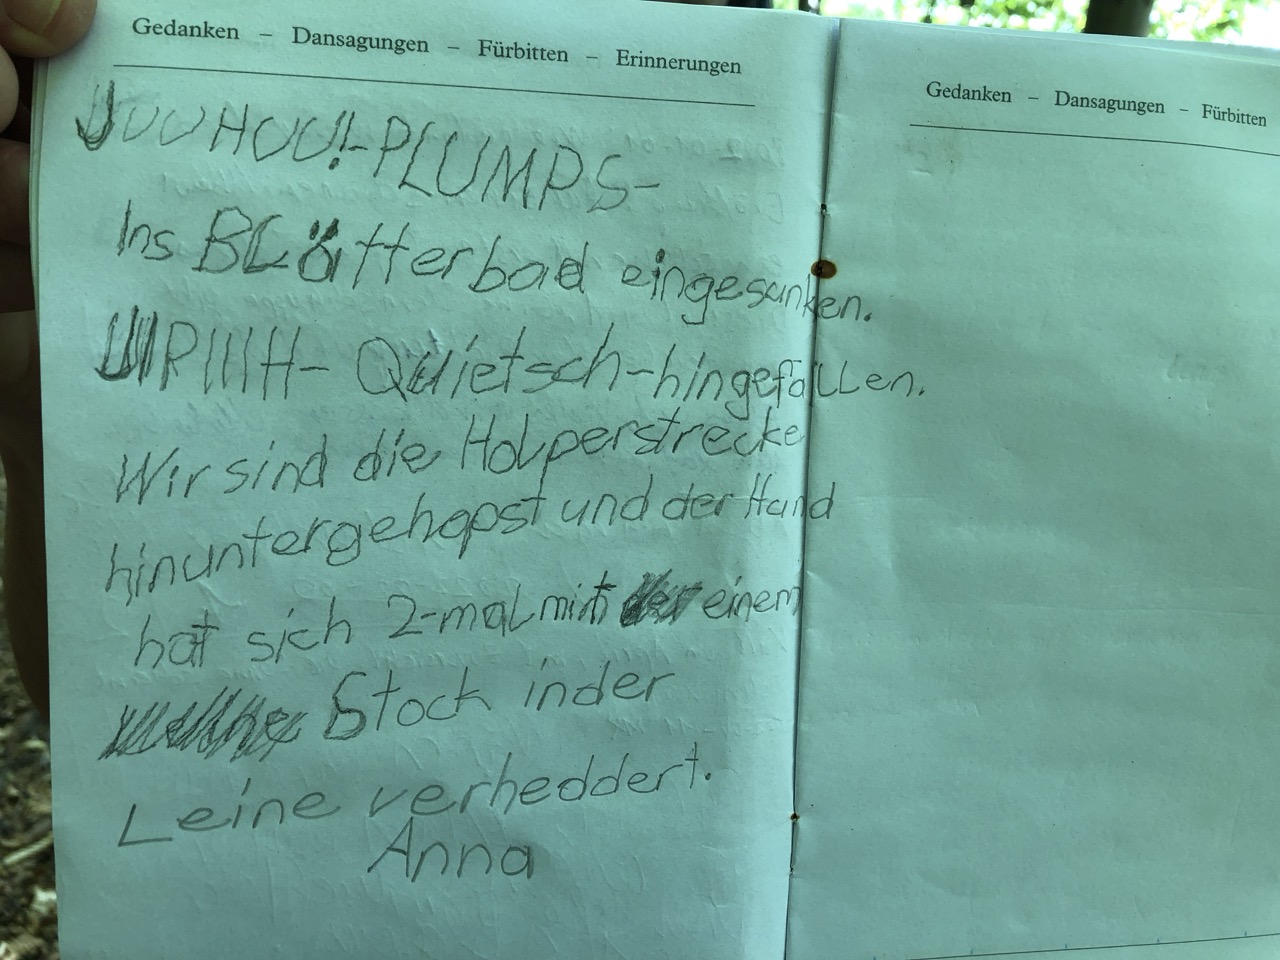 Gedanken – Dansagungen – Fürbitten – Erinnerungen
JUUHUU!-PLUMPS-
Ins BLätterbad eingesunken.
Quietsch-hingefalLen.
Wir sind die Holperstrecke
hinuntergehopst und der Hund
hat sich 2-mal mit einem
Stock in der
Leine verheddert.
Anna
Gedanken – Dansagungen – Fürbitten